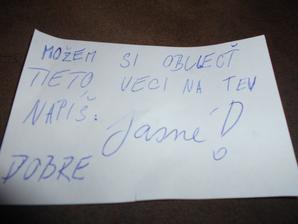 MOŽEM SI OBLIECŤ
TIETO VECI NA TEV
NAPÍŠ:
Jasné!
DOBRE